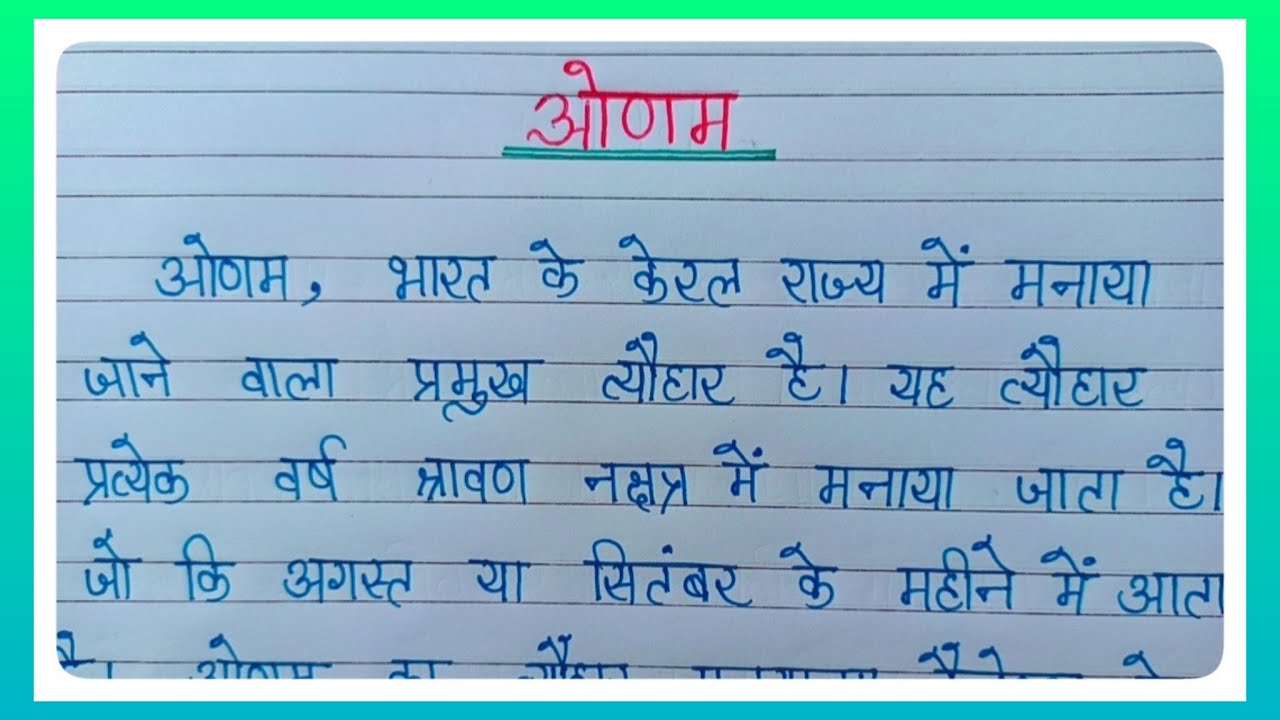 ओणम
ओणम, भारत के केरल राज्य में मनाया
जाने वाला प्रमुख त्यौहार है। यह त्यौहार
प्रत्येक वर्ष श्रावण नक्षत्र में मनाया जाता है।
जो कि अगस्त या सितंबर के महीने में आता
है। ओणम का त्यौहार